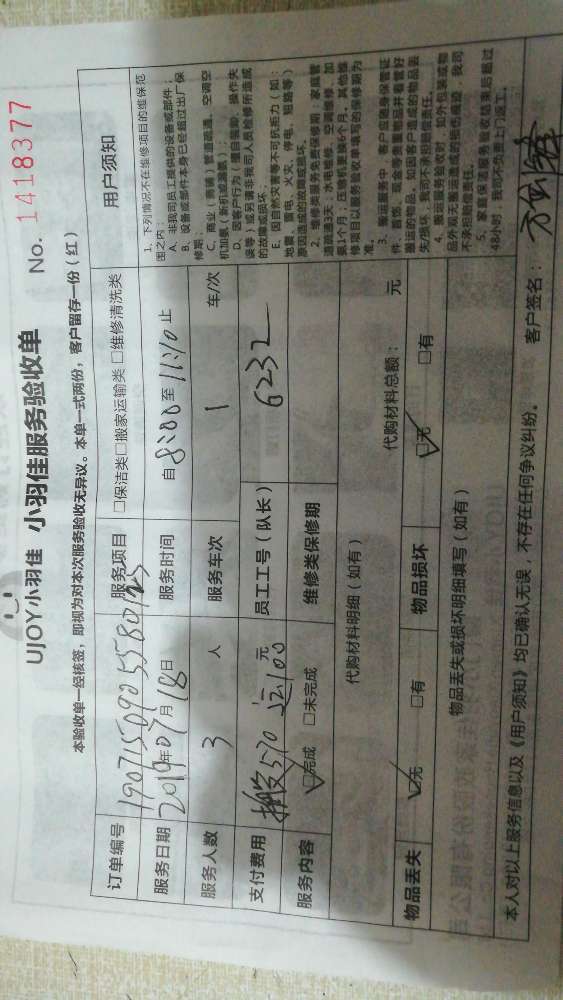 UJOY小羽佳 小羽佳服务验收单 No. 1418377
本验收单一经核签，即视为对本次服务验收无异议。本单一式两份，客户留存一份（红）
订单编号 190715090558012 服务项目 □保洁类 □搬家运输类 □维修清洗类
服务日期 2019年07月18日 服务时间 自8:00至11:10止
服务人数 3人 服务车次 1 车/次
支付费用 570 100元 员工工号（队长） 6232
服务内容 ☑完成 □未完成 维修类保修期
代购材料明细（如有） 代购材料总额： 元
物品丢失 ☑无 □有 物品损坏 ☑无 □有
物品丢失或损坏明细填写（如有）
用户须知
1、下列情况不在维修项目的维保范
围之内：
A、非我司员工提供的设备或部件；
B、设备或部件本身已经超过出厂保
修期；
C、商业（商铺）管道疏通、空调空
机加氟（新机或漏氟）；
D、因客户行为（擅自装卸、操作失
误等）或另请非我司人员检修所造成
的故障或损坏；
E、因自然灾害等不可抗拒力（如：
地震、雷电、火灾、停电、短路等）
原因造成的故障或损坏。
2、维修类服务免费保修期：家庭管
道疏通3天；水电维修、空调维修、加
氟1个月，压缩机更换6个月，其他维
修项目以服务验收单填写的保修期为
准。
3、搬运服务中，客户应随身保管证
件、首饰、现金等贵重物品并看管好
搬运的物品，如因客户造成的物品丢
失/损坏，我司不承担赔偿责任。
4、搬运服务验收时，如外包装或物
品外观无搬运造成的损伤痕迹，我司
不承担赔偿责任。
5、家庭保洁服务验收结束后超过
48小时，我司不负责上门返工。
本人对以上服务信息以及《用户须知》均已确认无误，不存在任何争议纠纷。 客户签名：